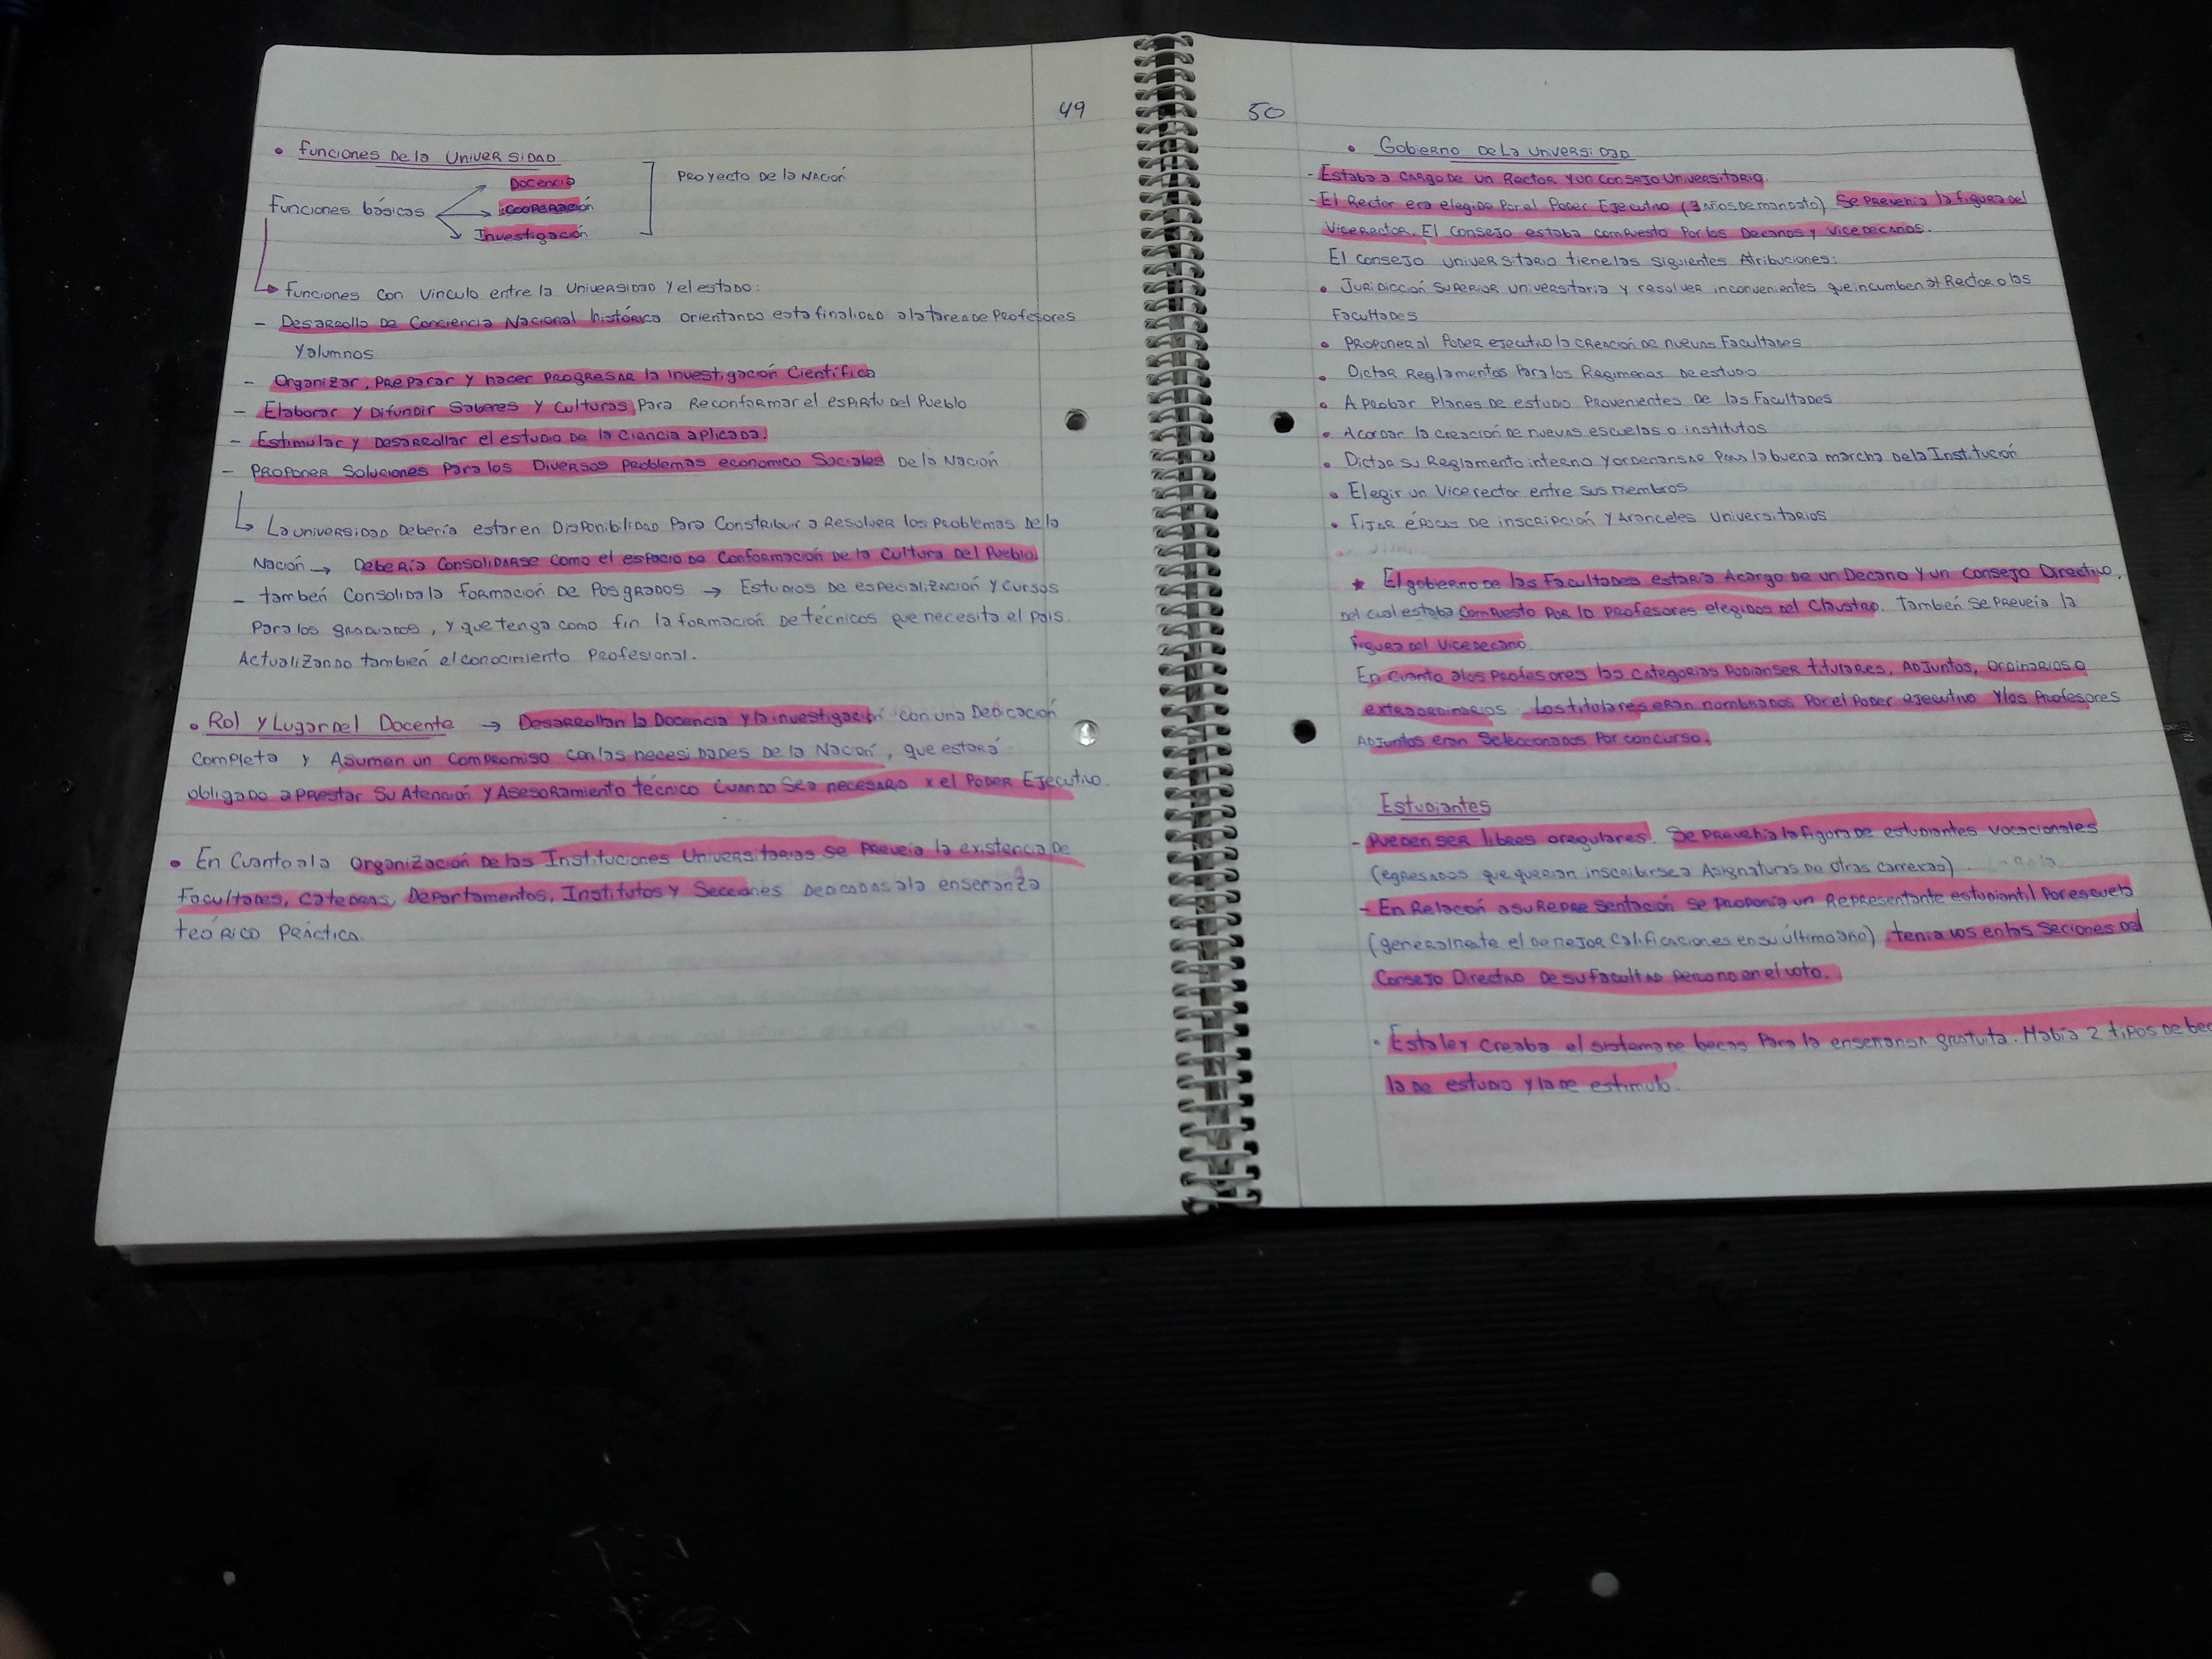 49
• Funciones De la Universidad
Docencia
Proyecto De la Nación
Funciones básicas
Cooperación
Investigación
Funciones con vinculo entre la Universidad y el estado:
- Desarrollo De Conciencia Nacional histórica orientando esta finalidad a la tarea de Profesores
y alumnos
- Organizar, Preparar y hacer progresar la Investigación Científica
- Elaborar y Difundir Saberes y Culturas Para Reconformar el espiritu Del Pueblo
- Estimular y Desarrollar el estudio De la Ciencia aplicada.
- Proponer Soluciones Para los Diversos Problemas economico Sociales De la Nación
La universidad Debería estar en Disponibilidad Para Constribuir a Resolver los Problemas De la
Nación → Debería Consolidarse como el espacio De Conformación De la Cultura Del Pueblo
- también Consolida la formación De Posgrados → Estudios De especialización y Cursos
Para los graduados, y que tenga como fin la formación De técnicos que necesita el País.
Actualizando también el conocimiento Profesional.
• Rol y Lugar Del Docente → Desarrollan la Docencia y la investigación con una Dedicación
Completa y Asumen un Compromiso con las necesidades De la Nación, que estará
obligado a Prestar Su Atención y Asesoramiento técnico Cuando Sea necesario x el Poder Ejecutivo.
• En Cuanto a la Organización De las Instituciones Universitarias se Preveía la existencia De
Facultades, Catedras, Departamentos, Institutos y Secciones Dedicadas a la enseñanza
teórico Práctica.
50
• Gobierno De La Universidad
- Estaba a cargo De un Rector y un Consejo Universitario.
- El Rector era elegido Por el Poder Ejecutivo (3 años De mandato) Se Prevehia la figura Del
Vicerector. El Consejo estaba compuesto Por los Decanos y Vicedecanos.
El Consejo Universitario tiene las siguientes Atribuciones:
• Juridicción Superior Universitaria y resolver inconvenientes que incumben al Rector o las
Facultades
• Proponer al Poder ejecutivo la creación De nuevas Facultades
• Dictar Reglamentos Para los Regimenes De estudio
• Aprobar Planes De estudio Provenientes De las Facultades
• Acordar la creación De nuevas escuelas o institutos
• Dictar su Reglamento interno y ordenansas Para la buena marcha De la Institución
• Elegir un Vicerector entre sus miembros
• Fijar épocas De inscripción y Aranceles Universitarios
★ El gobierno De las Facultades estaria Acargo De un Decano y un Consejo Directivo,
Del cual estaba Compuesto Por 10 Profesores elegidos Del Claustro. También Se Preveía la
figura Del Vicedecano.
En Cuanto a los Profesores las Categorías Podian ser titulares, Adjuntos, Ordinarios o
extraordinarios. Los titulares eran nombrados Por el Poder ejecutivo y los Profesores
Adjuntos eran Seleccionados Por concurso.
Estudiantes
- Pueden ser libres o regulares. Se Prevehia la figura De estudiantes Vocacionales
(egresados que querian inscribirse a Asignaturas De Otras Carreras).
- En Relación a su Representación se proponia un Representante estudiantil Por escuela
(generalmente el De mejor Calificaciones en su último año) tenia vos en las Seciones Del
Consejo Directivo De su facultad Pero no en el voto.
• Esta ley Creaba el sistema De becas Para la enseñansa gratuita. Había 2 tipos De bec
la De estudio y la De estimulo.